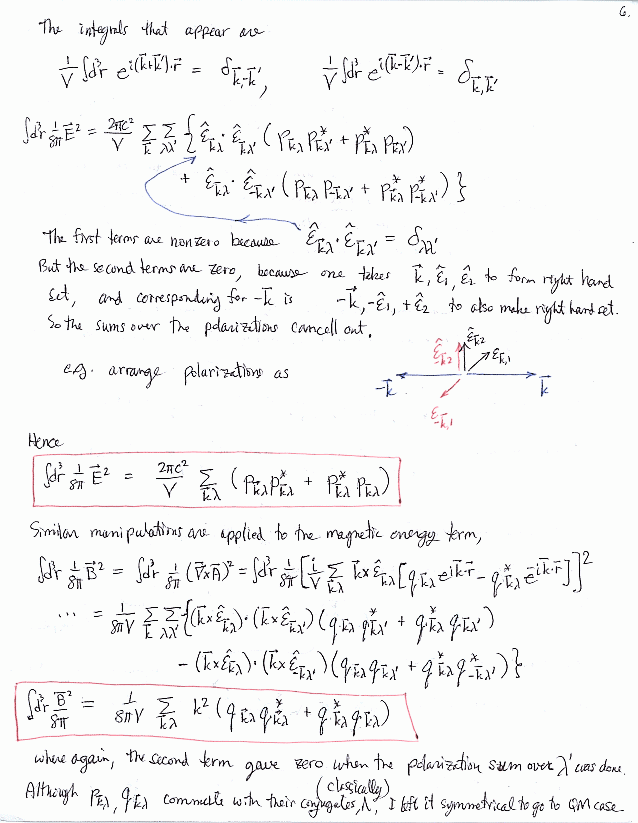 6.
The integrals that appear are
1/V ∫d³r e^{i(k⃗+k⃗')·r⃗} = δ_{k⃗,-k⃗'} , 1/V ∫d³r e^{i(k⃗-k⃗')·r⃗} = δ_{k⃗,k⃗'}
∫d³r 1/8π E⃗² = 2πc²/V Σ_k⃗ Σ_λλ' { ε̂_k⃗λ · ε̂_k⃗λ' ( p_k⃗λ p*_k⃗λ' + p*_k⃗λ p_k⃗λ' )
+ ε̂_k⃗λ · ε̂_-k⃗λ' ( p_k⃗λ p_-k⃗λ' + p*_k⃗λ p*_-k⃗λ' ) }
The first terms are nonzero because ε̂_k⃗λ · ε̂_k⃗λ' = δ_λλ'
But the second terms are zero, because one takes k⃗, ε̂₁, ε̂₂ to form right hand
set, and corresponding for -k⃗ is -k⃗, -ε̂₁, +ε̂₂ to also make right hand set.
So the sums over the polarizations cancell out.
e.g. arrange polarizations as
ε̂_-k⃗2 ε̂_k⃗2 ε̂_k⃗,1
-k⃗ k⃗
ε_-k⃗,1
Hence
∫d³r 1/8π E⃗² = 2πc²/V Σ_k⃗λ ( p_k⃗λ p*_k⃗λ + p*_k⃗λ p_k⃗λ )
Similar manipulations are applied to the magnetic energy term,
∫d³r 1/8π B⃗² = ∫d³r 1/8π (∇⃗×A⃗)² = ∫d³r 1/8π [ i/V Σ_k⃗λ k⃗×ε̂_k⃗λ [ q_k⃗λ e^{ik⃗·r⃗} - q*_k⃗λ e^{-ik⃗·r⃗} ] ]²
... = 1/8πV Σ_k⃗ Σ_λλ' { (k⃗×ε̂_k⃗λ)·(k⃗×ε̂_k⃗λ') ( q_k⃗λ q*_k⃗λ' + q*_k⃗λ q_k⃗λ' )
- (k⃗×ε̂_k⃗λ)·(k⃗×ε̂_k⃗λ') ( q_k⃗λ q_k⃗λ' + q*_k⃗λ q*_-k⃗λ' ) }
∫d³r B⃗²/8π = 1/8πV Σ_k⃗λ k² ( q_k⃗λ q*_k⃗λ + q*_k⃗λ q_k⃗λ )
where again, the second term gave zero when the polarization sum over λ' was done.
Although p_k⃗λ, q_k⃗λ commute with their conjugates, (classically) I left it symmetrical to go to QM case